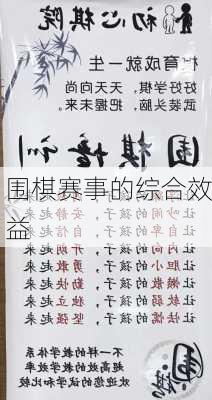 初心棋院
棋育成就一生
好好学棋,天天向尚
武装头脑,把握未来
围棋培训
围棋赛事的综合效
益
让 的孩子,安静起来
让自卑的孩子, 起来
让内向的孩子,开朗起来
让胆小的孩子,勇敢起来
让懒散的孩子,勤快起来
让 的孩子,独立起来
让 的孩子,坚强起来
不一样的教学体系
高效的教学方法
欢迎您的试学和比较
围棋